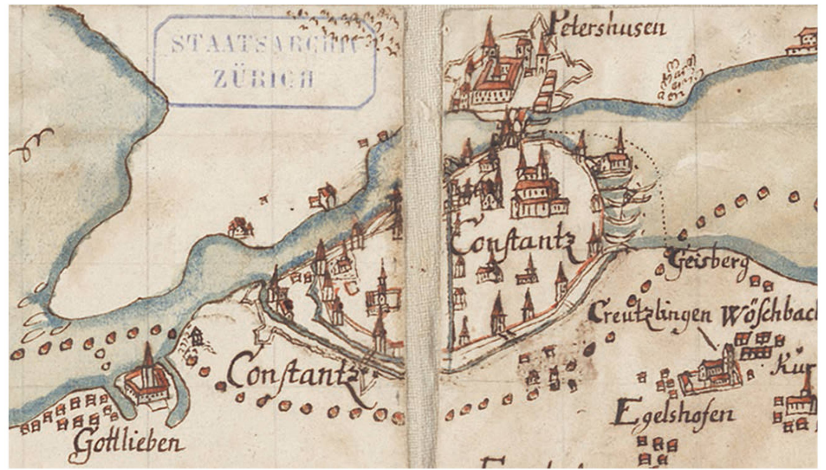 STAATSARCHIV
ZÜRICH
Petershusen
Constantz
Geisberg
Creutzlingen Wöschbach
Kur
Egelshofen
Constantz
Gottlieben